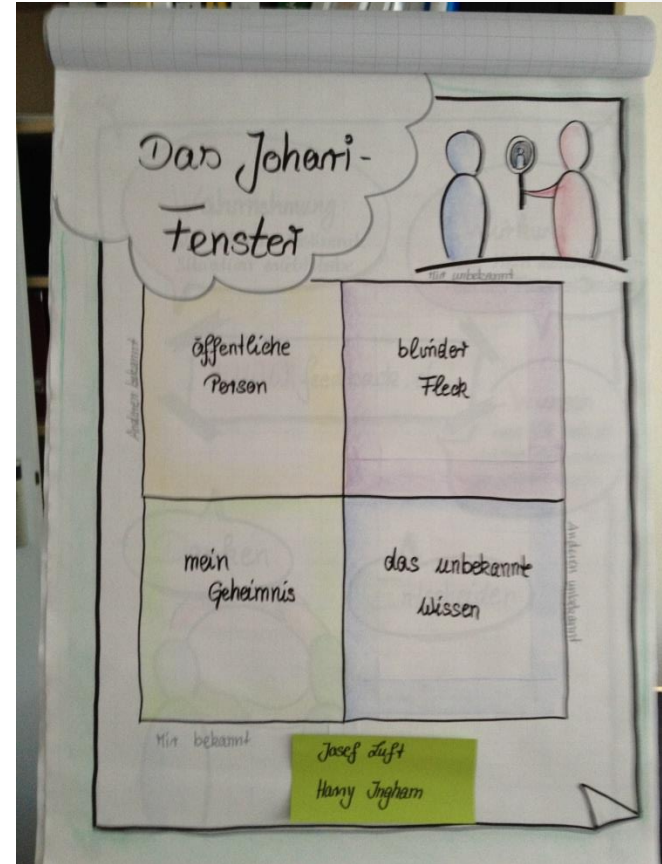 Das Johari-
Fenster
Mir unbekannt
Anderen bekannt
öffentliche
Person
blinder
Fleck
mein
Geheimnis
das unbekannte
Wissen
Anderen unbekannt
Mir bekannt
Josef Luft
Harry Ingham